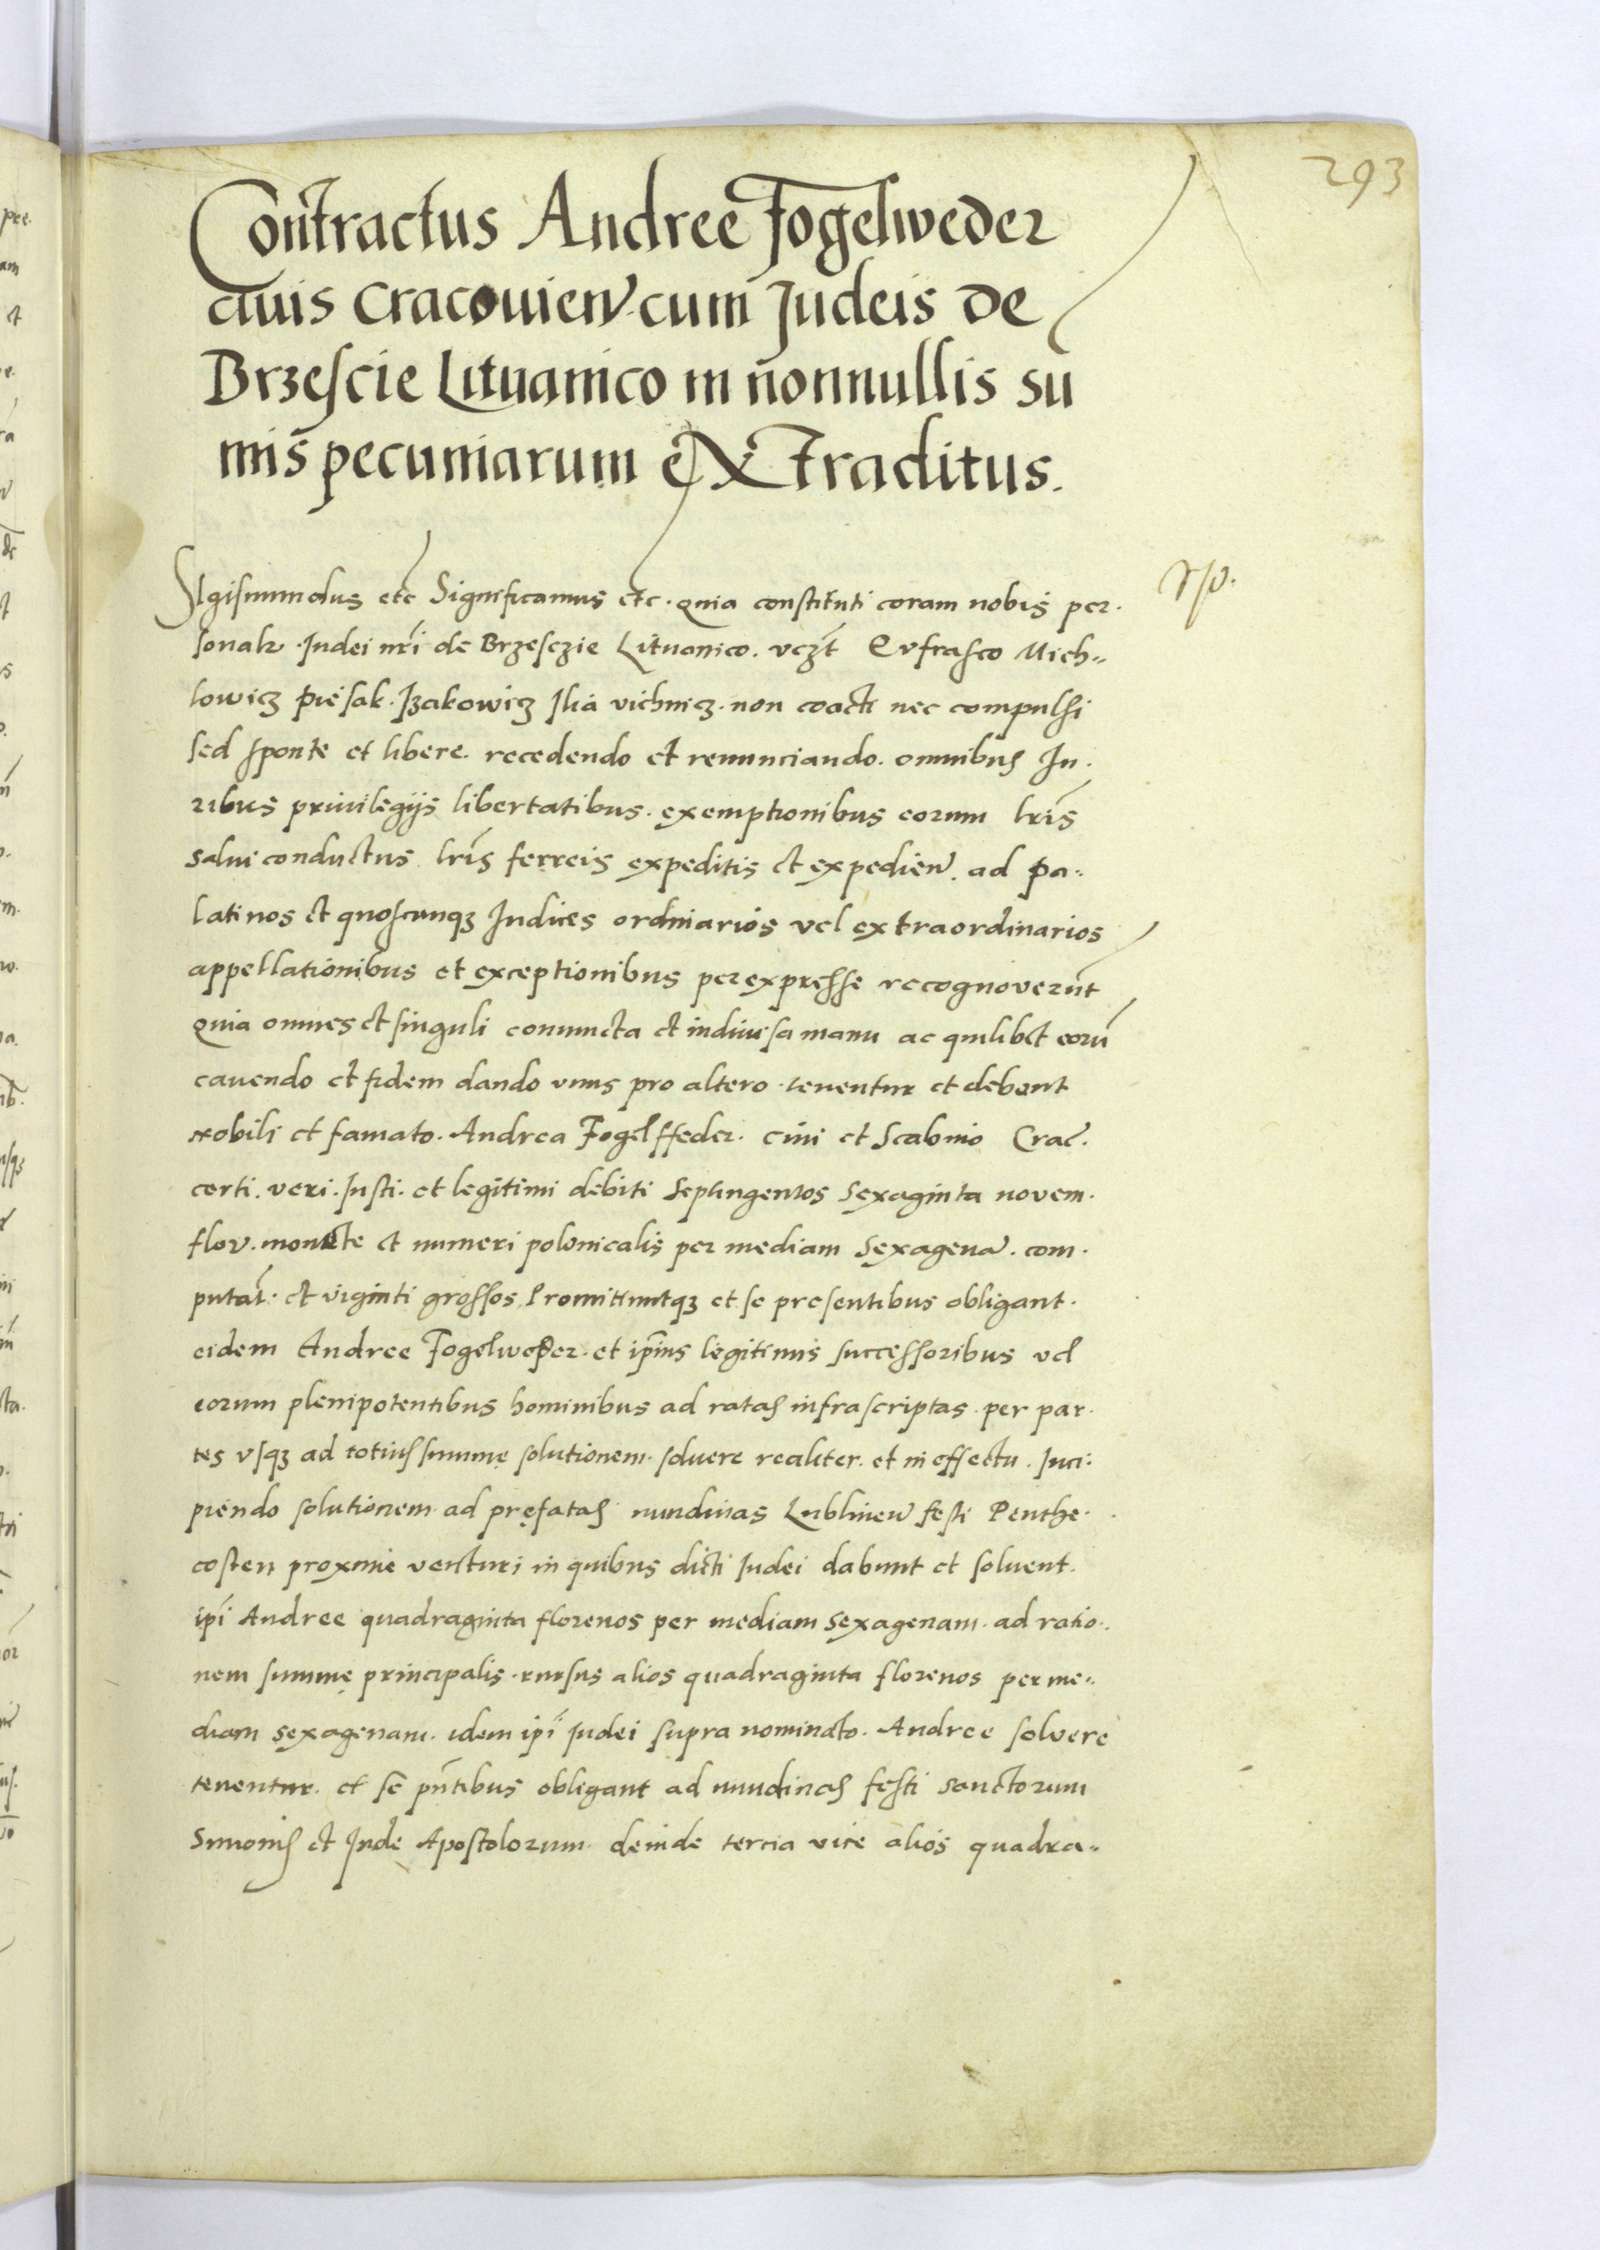 293
Contractus Andree Fogelweder
ciuis Cracouien cum Judeis de
Brzescie Lituanico in nonnullis su
mis pecuniarum extraditus.
Sigismundus etc Significamus etc. quia constituti coram nobis per.
sonalr Iudei nri de Brzesczie Lituanico. vczt Eufrasco Mich=
lowicz Piesak. Izakowicz Ilia vichnicz. non coacti nec compulsi
sed sponte et libere. recedendo et renunciando. omnibus Iu.
ribus privilegijs libertatibus. exemptionibus eorum lris
salui conductus lris ferreis expeditis et expedien. ad pa=
latinos et quoscunqz Iudices ordinarios vel extraordinarios
appellationibus et exceptionibus per expresse recognoverunt
quia omnes et singuli coniuncta et indiuisa manu ac quilibet eoru
cavendo et fidem dando vnus pro altero. tenentur et debent
Nobili et famato. Andrea Fogelffeder. ciui et Scabino Crac.
certi. veri. Iusti. et legitimi debiti septingentos sexaginta novem.
flor. monete et numeri polonicalis per mediam sexagena. com.
putat. et viginti grossos Promittuntqz et se presentibus obligant.
eidem Andree Fogelweder. et ipius legitimis successoribus vel
eorum plenipotentibus hominibus ad ratas infrascriptas. per par.
tes vsqz ad totius summe solutionem. solvere realiter. et in effectu. Inci:
piendo solutionem ad prefatas nundinas Lublinen festi Penthe.
costen proxime venturi in quibus dicti Iudei dabunt et solvent.
ipi Andree quadraginta florenos per mediam sexagenam. ad ratio.
nem summe principalis. rursus alios quadraginta florenos per me=
diam sexagenam. idem ipi Iudei supra nominato. Andree solvere
tenentur. et se pntibus obligant ad nundinas festi sanctorum
Simonis et Iude Apostolorum. deinde tercia vice alios quadra=